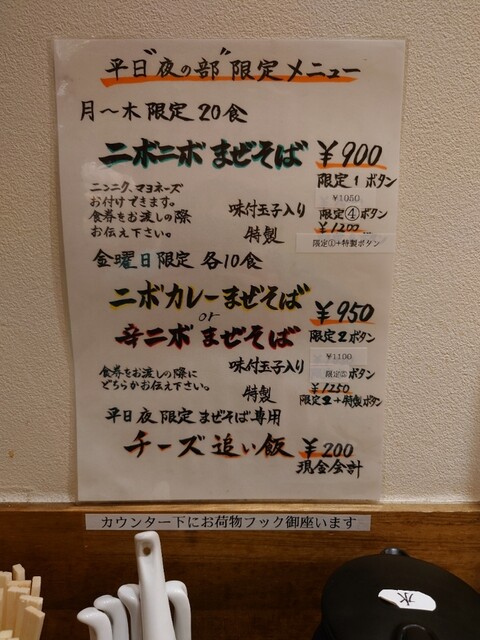 平日"夜の部"限定メニュー
月〜木限定20食
ニボニボまぜそば ¥900
限定1ボタン
ニンニク、マヨネーズ
お付けできます。
食券をお渡しの際
お伝え下さい。
味付玉子入り ¥1050
限定④ボタン
特製 ¥1200
限定①+特製ボタン
金曜日限定 各10食
ニボカレーまぜそば
or
辛ニボまぜそば
¥950
限定2ボタン
食券をお渡しの際に
どちらかお伝え下さい。
味付玉子入り ¥1100
限定⑤ボタン
特製 ¥1250
限定2+特製ボタン
平日夜限定まぜそば専用
チーズ追い飯 ¥200
現金会計
カウンター下にお荷物フック御座います
水